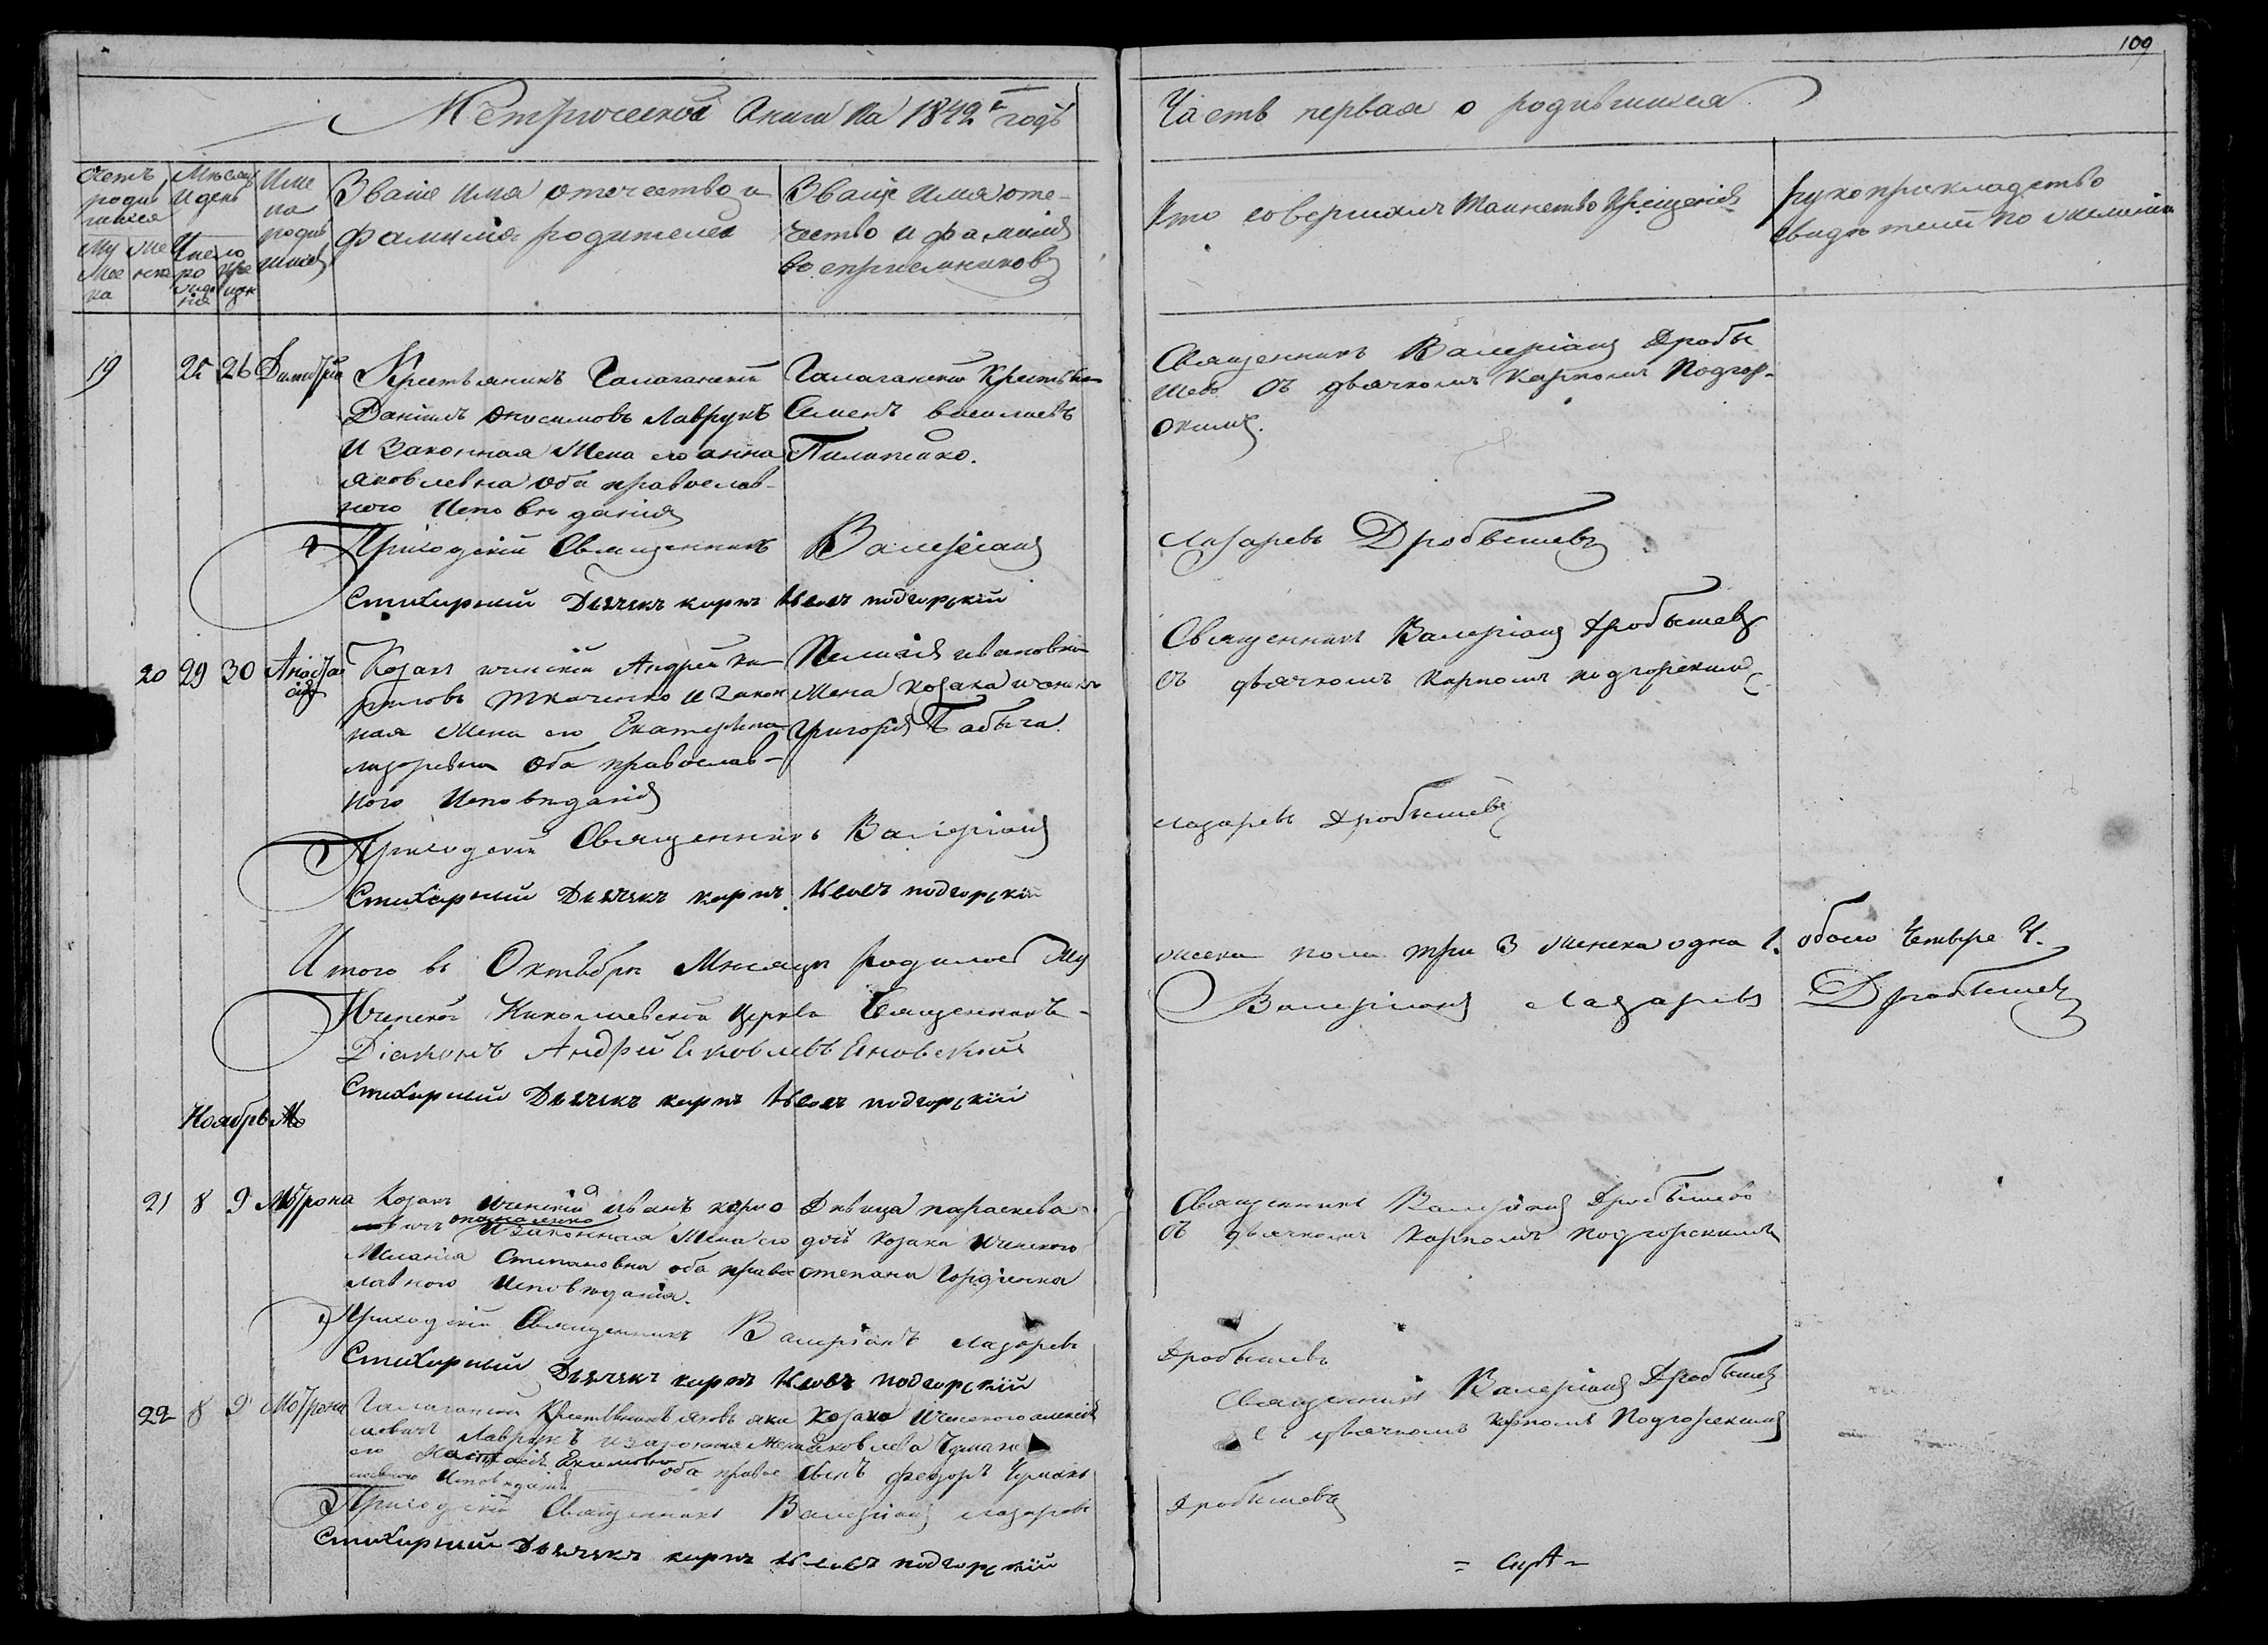 109
Метрической книги на 1842й годъ
Часть первая о родившихся
Счетъ родившихся
Мѣсяцъ и день
Имена родившихся
Званіе имя отечество и фамилія родителей
Званіе имя отечество и фамилія воспріемниковъ
Кто совершилъ таинство крещенія
рукоприкладство свидѣтелей по желанію
19
25
26
Димитрій
Крестьянинъ Галаганскій
Даніилъ Онисимовъ Лаврукъ
и законная жена его Анна
Яковлевна оба православ-
ного исповѣданія
Семенъ Василіевъ
Пилипенко.
Священникъ Валеріанъ Дробы
шевъ съ дьячкомъ Карпомъ Подгор-
скимъ.
Приходскій Священникъ Валеріанъ
Лазаревъ Дробышевъ
Стихарный Дьячекъ карпъ подгорскій
20 29 30
Козакъ иченскій Андрей Ки
риловъ Ткаченко и закон
ная жена его Екатерина
Лазоревна оба православ-
ного исповѣданія
ивановна
жена козака
григорія Бабыча.
Священникъ Валеріанъ Дробышевъ
съ дьячкомъ Карпомъ подгорскимъ
Приходскій Священникъ Валеріанъ
Лазаревъ Дробышевъ
Стихарный Дьячекъ карпъ подгорскій
Итого въ Октябрѣ Мѣсяцѣ родилось му
жеска пола три 3 женска одна 1. обоего Четыре 4.
Иченской Николаевской церкви Священникъ-
Валеріанъ Лазаревъ Дробышевъ
Діаконъ Андрей Яковлевъ Яновскій
Стихарный Дьячекъ карпъ подгорскій
Ноябрь
21 8 9 Мотрона
Козакъ иченскій иванъ
и законная жена его
Меланія Степановна оба право
славного исповѣданія.
Дѣвица параскева
дочь козака иченского
степана Гордіенка
Священникъ Валеріанъ Дробышевъ
съ дьячкомъ Карпомъ подгорскимъ
Приходскій Священникъ Валеріанъ Лазаревъ
Дробышевъ
Стихарный Дьячекъ карпъ подгорскій
22 8 9 Мотрона
Галаганскій Крестьянинъ яковъ
Лаврукъ и законная жена
его Настасія
оба право
славного исповѣданія
козака иченского алексія
яковлева Чумака
сынъ федоръ Чумакъ
Священникъ Валеріанъ Дробышевъ
съ дьячкомъ Карпомъ Подгорскимъ
Приходскій Священникъ Валеріанъ Лазаревъ
Дробышевъ
Стихарный Дьячекъ карпъ подгорскій